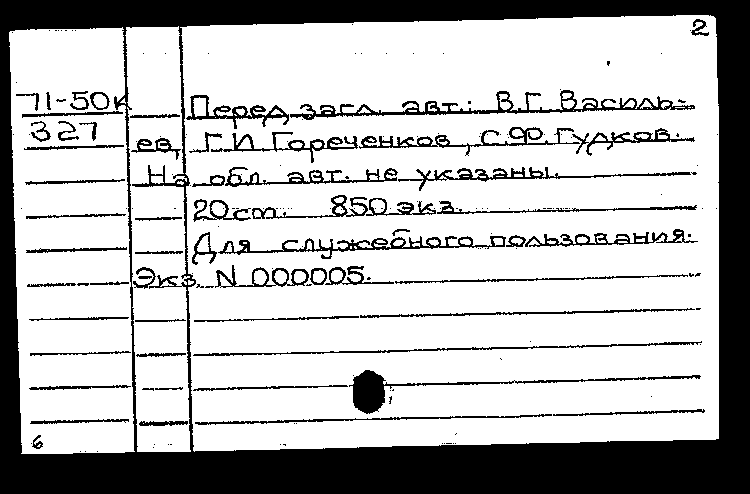 2
71-50к Перед загл. авт.: В.Г. Василь-
327 ев, Г.И. Гореченков, С.Ф. Гудков.
На обл. авт. не указаны.
20 ст. 850 экз.
Для служебного пользования.
Экз. N 000005.
6